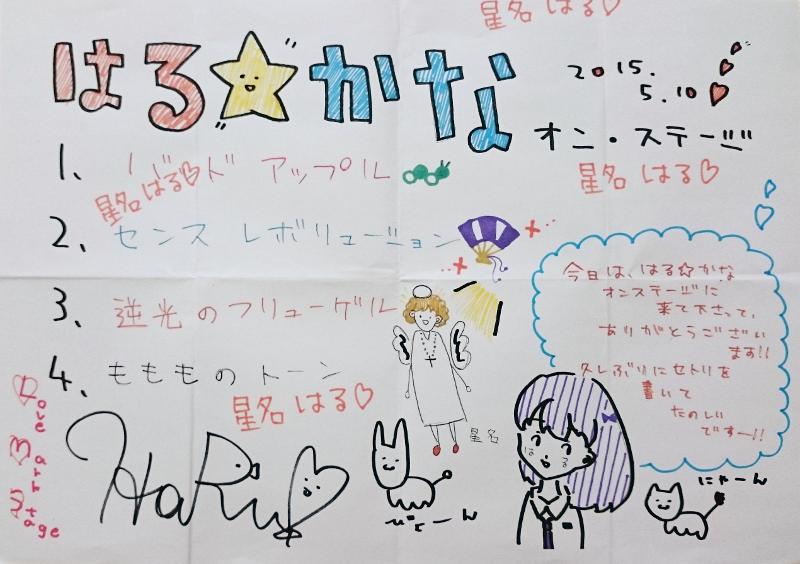 星名 はる♡
はる☆かな
2015.
5.10
オン・ステージ
星名 はる♡
1、バード アップル
星名 はる♡
2、センス レボリューション
3、逆光のフリューゲル
4、もももの トーン
星名 はる♡
今日は、はる☆かな
オンステージに
来て下さって、
ありがとうござい
ます!!
久しぶりにセトリを
書いて
たのしい
ですー!!
星名
はる
HaRu
ぴょーん
にゃーん